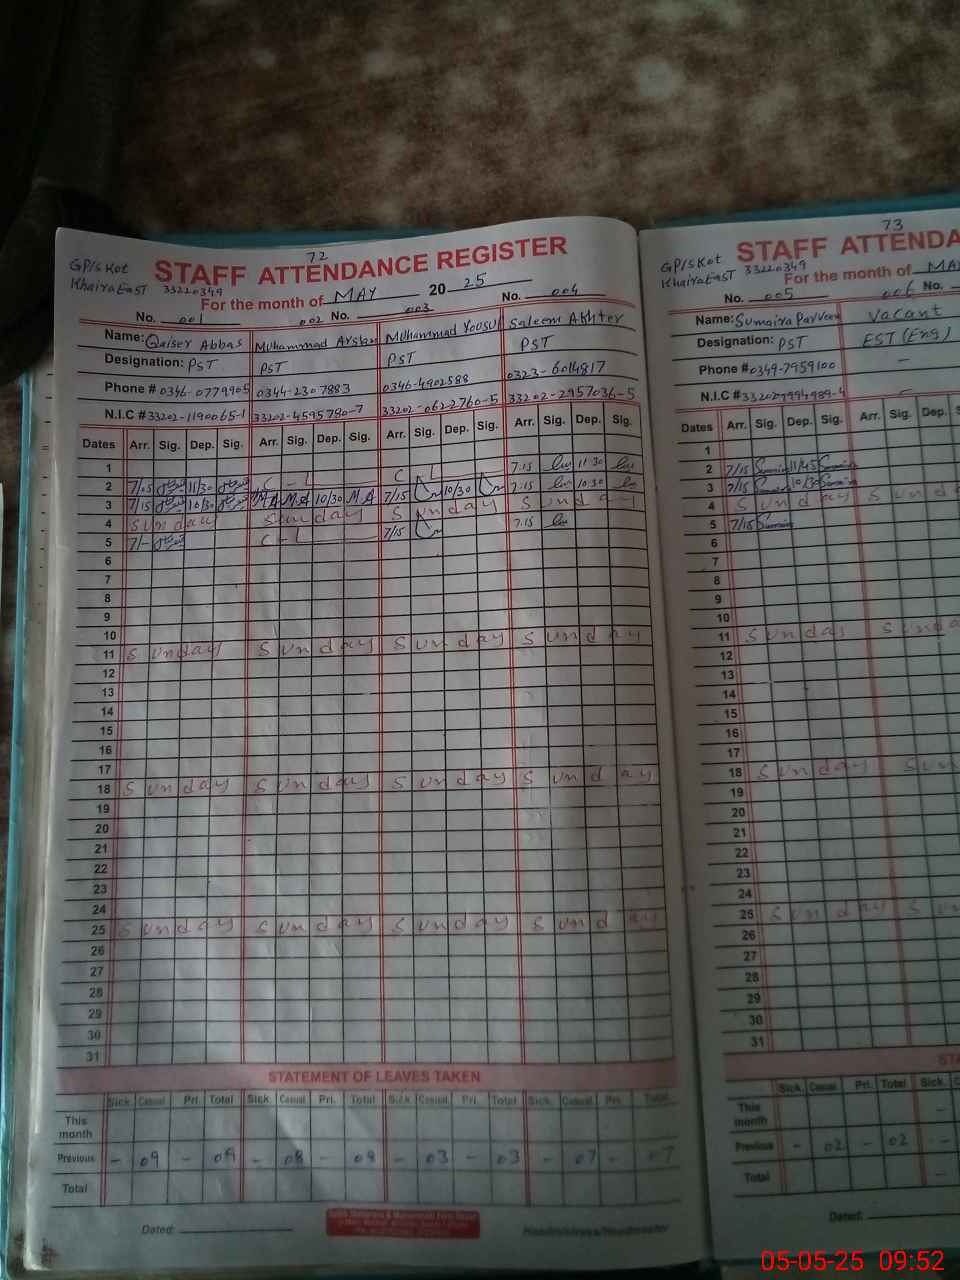 72
GP/S Kot
Khaira EasT 33220349
STAFF ATTENDANCE REGISTER
For the month of MAY 20 25
No. 001 002 No. 003 No. 004
Name: Qaiser Abbas Muhammad Arslan Muhammad Yousuf Saleem Akhter
Designation: PST PST PST PST
Phone # 0346-0779905 0344-2307883 0346-4902588 0323-6014817
N.I.C # 33202-1190065-1 33202-4595780-7 33202-0622760-5 33202-2957036-5
Dates Arr. Sig. Dep. Sig. Arr. Sig. Dep. Sig. Arr. Sig. Dep. Sig. Arr. Sig. Dep. Sig.
1
2 7/15 11/30 C-L C L 7:15 11:30
3 7/15 10/30 M.A M.A 10/30 M.A 7/15 10/30 7:15 10:30
4 Sunday Sunday Sunday Sunday
5 7/- C-L 7/15 7:15
6
7
8
9
10
11 Sunday Sunday Sunday Sunday
12
13
14
15
16
17
18 Sunday Sunday Sunday Sunday
19
20
21
22
23
24
25 Sunday Sunday Sunday Sunday
26
27
28
29
30
31
STATEMENT OF LEAVES TAKEN
Sick. Casual. Pri. Total Sick. Casual. Pri. Total Sick. Casual. Pri. Total Sick. Casual. Pri. Total
This month
Previous - 09 - 09 - 08 - 08 - 03 - 03 - 07 - 07
Total
Dated:
73
GP/S Kot
Khaira EasT 33220349
STAFF ATTENDA
For the month of MA
No. 005 006 No.
Name: Sumaira Parveen Vacant
Designation: PST EST (Eng)
Phone # 0349-7959100 -
N.I.C #
Dates Arr. Sig. Dep. Sig. Arr. Sig. Dep.
1
2 7/15 Sumaira 11/45 Sumaira
3 7/15 Sumaira 10/30 Sumaira
4 Sunday Sund
5 7/15 Sumaira
6
7
8
9
10
11 Sunday Sunda
12
13
14
15
16
17
18 Sunday Sun
19
20
21
22
23
24
25 Sunday Sun
26
27
28
29
30
31
STA
Sick. Casual. Pri. Total Sick. C
This month -
Previous - 02 - 02 -
Total -
Dated:
05-05-25 09:52